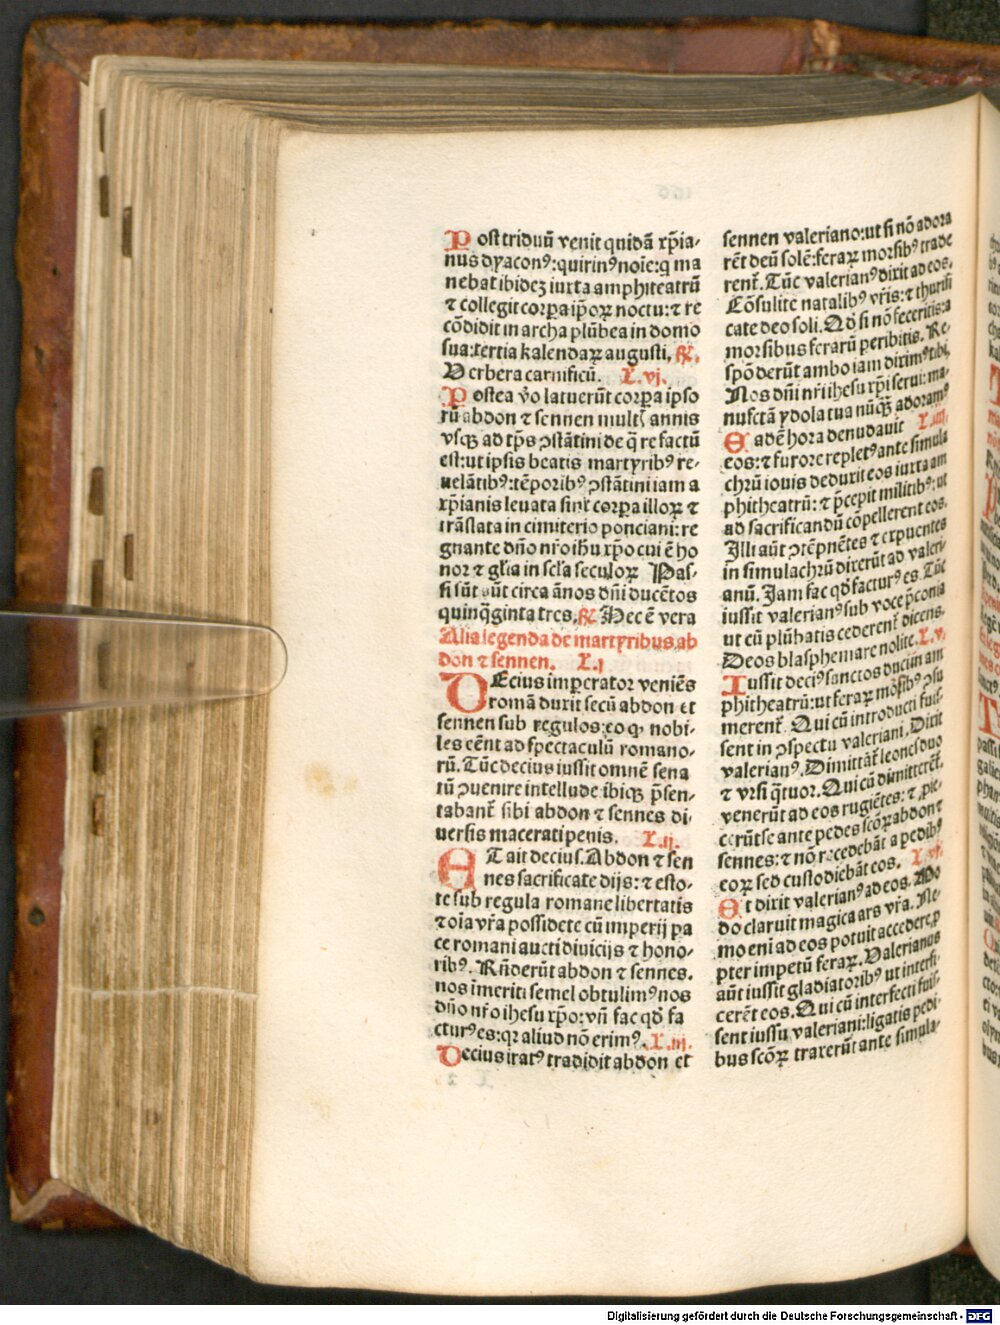 Post triduū venit quidā xp̄ia-
nus dyacon⁹: quirin⁹ noīe: q̄ ma
nebat ibideʒ iuxta amphiteatrū
⁊ collegit corꝑa ip̄oꝝ noctu: ⁊ re
cōdidit in archa plūbea in domo
sua: tertia kalendaꝝ augusti, ℟.
Verbera carnificū. L. vj.
Postea v̄o latuerūt corꝑa ipso
rū abdon ⁊ sennen mult annis
vsqꝫ ad tp̄s ꝯstātini de q̄ re factū
est: ut ipsis beatis martyrib⁹ re-
uelātib⁹: tēporib⁹ ꝯstātini iam a
xp̄ianis leuata sint corꝑa illoꝝ ⁊
trāslata in cimiterio ponciani: re
gnante dn̄o nr̄o ih̄u xp̄o cui ē ho
nor ⁊ gl̄ia in sc̄la seculoꝝ Pas-
si sūt aūt circa ānos dn̄i ducētos
quinq̄ginta tres, ℟ Hec ē vera
Alia legenda de martyribus ab
don ⁊ sennen. L. j
DEcius imperator veniēs
romā duxit secū abdon et
sennen sub regulos: eo qꝫ nobi-
les eēnt ad spectaculū romano-
rū. Tūc decius iussit omnē sena
tū ꝯuenire intellude ibiqꝫ p̄sen-
tabant̄ sibi abdon ⁊ sennes di-
uersis macerati penis. L. ij.
ET ait decius. Abdon ⁊ sen
nes sacrificate dijs: ⁊ esto-
te sub regula romane libertatis
⁊ oīa vr̄a possidete cū imperij pa
ce romani aucti diuicijs ⁊ hono-
rib⁹. Rn̄derūt abdon ⁊ sennes.
nos īmeriti semel obtulim⁹ nos
dn̄o nr̄o ihesu xp̄o: vn̄ fac qd̄ fa
ctur⁹ es: qꝛ aliud nō erim⁹. L. iij.
Decius irat⁹ tradidit abdon et
sennen valeriano: ut si nō adora
rēt deū solē: feraꝝ morsib⁹ trade
rent̄. Tūc valerian⁹ dixit ad eos.
Cōsulite natalib⁹ vr̄is: ⁊ thurisi
cate deo soli. Qd̄ si nō feceritis: a
morsibus ferarū peribitis. Re-
spōderūt ambo iam diximus tibi,
Nos dn̄i nr̄i ihesu xp̄i serui: ma-
nufctā ydola tua nūq̄ adoram⁹
Eadē hora denudauit L. iiij.
eos: ⁊ furore replet⁹ ante simula
chrū iouis deduxit eos iuxta am
phitheatrū: ⁊ p̄cepit militib⁹: ut
ad sacrificandū cōpellerent eos.
Illi aūt ꝯtēpnētes ⁊ expuentes
in simulachrū dixerūt ad valeri-
anū. Iam fac qd̄ factur⁹ es. Tūc
iussit valerian⁹ sub voce p̄conia
ut cū plūbatis cederent̄ dicens.
Deos blasphemare nolite. L. v.
Iussit deci⁹ sanctos duci in am
phitheatrū: ut feraꝝ morsib⁹ ꝯsu
merent̄. Qui cū introducti fuis-
sent in ꝯspectu valeriani, Dixit
valerian⁹. Dimittāt̄ leones duo
⁊ vrsi q̄tuor. Qui cū dimitterēt̄,
venerūt ad eos rugiētes: ⁊ proie-
cerūt se ante pedes scōꝝ abdon ⁊
sennes: ⁊ nō recedebāt a pedib⁹
eoꝝ sed custodiebāt eos. L. vi.
Et dixit valerian⁹ ad eos. Mo
do claruit magica ars vr̄a. Ne-
mo eni ad eos potuit accedere, ꝓ
pter impetū feraꝝ. Valerianus
aūt iussit gladiatorib⁹ ut interfi-
cerēt eos. Qui cū interfecti fuis-
sent iussu valeriani: ligatis pedi-
bus scōꝝ traxerūt ante simula-
Digitalisierung gefördert durch die Deutsche Forschungsgemeinschaft - DFG